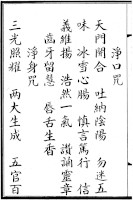 淨口咒
天門開合　吐納陰陽　勿迷五
味　冰雪心腸　慎言篤行　信
義維揚　浩然一氣　讚誦靈章
齒牙留慧　唇舌生香
淨身咒
三光照耀　兩大生成　五官百